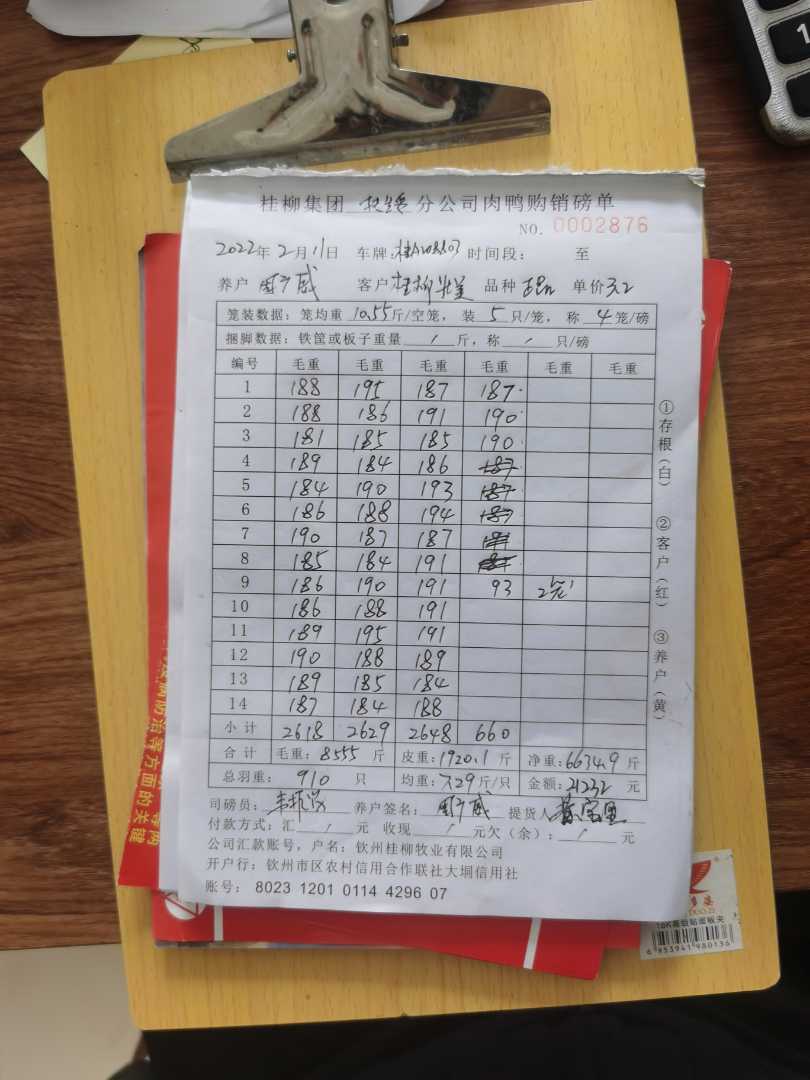 桂柳集团 分公司肉鸭购销磅单
NO. 0002876
2022年2月11日 车牌: 时间段: 至
养户 客户 桂柳 品种 单价 3.2
笼装数据: 笼均重 10.55斤/空笼, 装 5 只/笼, 称 4 笼/磅
捆脚数据: 铁筐或板子重量 / 斤, 称 / 只/磅
编号 毛重 毛重 毛重 毛重 毛重 毛重
1 188 195 187 187
2 188 186 191 190
3 181 185 185 190
4 189 184 186 187
5 184 190 193 187
6 186 188 194 187
7 190 187 187
8 185 184 191
9 186 190 191 93 2笼
10 186 188 191
11 189 195 191
12 190 188 189
13 189 185 184
14 187 184 188
小计 2618 2629 2648 660
合计 毛重: 8555 斤 皮重: 1920.1 斤 净重: 6634.9 斤
总羽重: 910 只 均重: 7.29斤/只 金额: 21232 元
司磅员: 养户签名: 提货人
付款方式: 汇 / 元 收现 / 元欠(余): / 元
公司汇款账号, 户名: 钦州桂柳牧业有限公司
开户行: 钦州市区农村信用合作联社大垌信用社
账号: 8023 1201 0114 4296 07
①存根(白)
②客户(红)
③养户(黄)
病防治等方面的关键
6 953941 980136
1